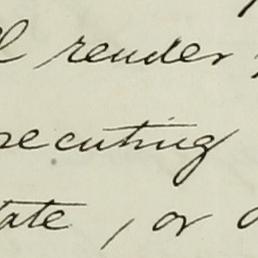 render
ecuting
ate, or